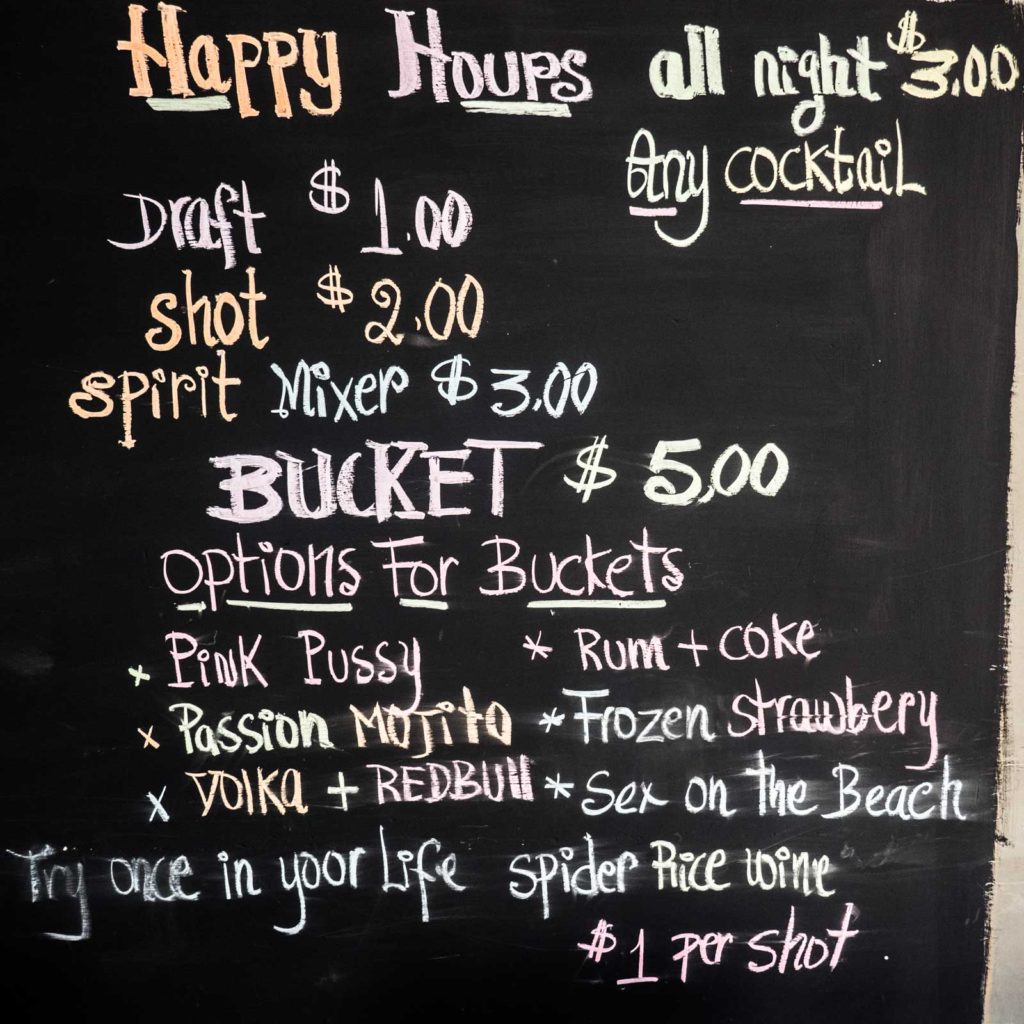 Happy Hours all night $3.00
Any cocktail
Draft $1.00
shot $2.00
spirit Mixer $3.00
BUCKET $5,00
options For Buckets
x Pink Pussy * Rum + coke
x Passion MOJITO * Frozen strawbery
x Volka + REDBUll * Sex on the Beach
Try once in your Life spider Rice wine
$1 per shot.